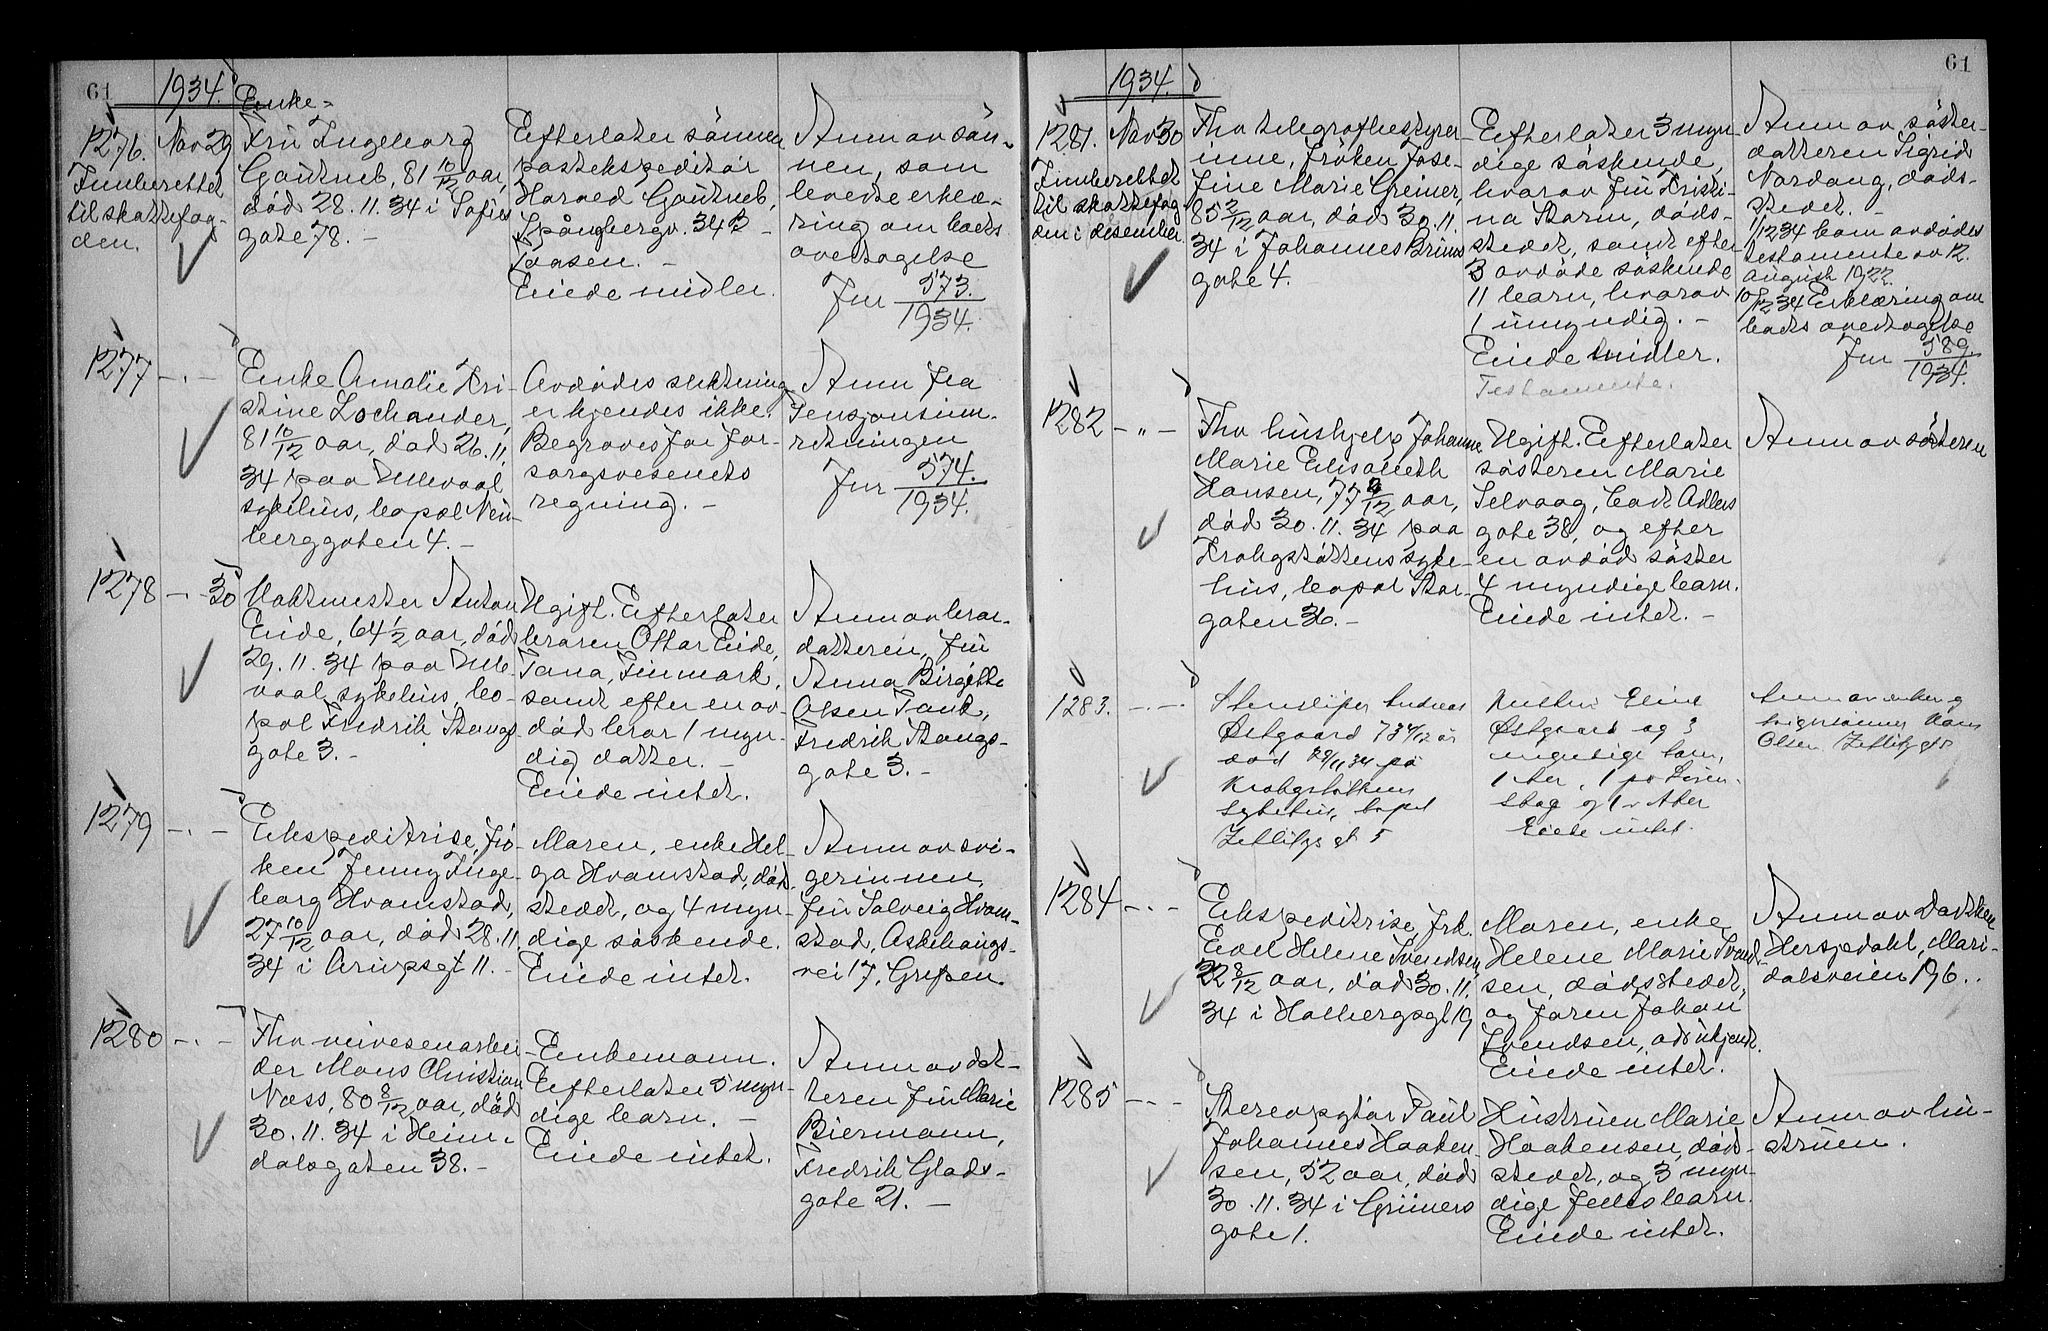 61
1934.
1276.
Innberettet
til skattefog-
den.
Nov 29
Enke-
Fru Ingeborg
Gautneb, 81 10/12 aar,
död 28.11.34 i Sofies
gate 78. -
Efterlater sönnen
postekspeditör
Harald Gautneb,
Spångbergv. 34 B -
Taasen. -
Eiede midler.
Anm av sön-
nen, som
leverte erklæ-
ring om boets
overtagelse
Jnr 573.
1934.
1277
- " -
Enke Amalie Kri-
stine Lochander,
81 10/12 aar, död 26.11.
34 paa Ullevaal
sykehus, bopæl Neu-
berggaten 4. -
Avdödes slektning
er kjendes ikke.
Begraves for for-
sorgsvesenets
regning. -
Anm fra
Pensjonsinn-
retningen
Jnr 574.
1934.
1278
- " - 30
Vaktmester Anton
Eide, 64 1/2 aar, död
29.11.34 paa Ulle-
vaal sykehus, bo-
pæl Fredrik Stangs
gate 3. -
Ugift. Efterlater
broren Ottar Eide,
Tana, Finmark,
samt efter en av-
död bror 1 myn-
dig datter. -
Eiede intet.
Anm av bror-
datteren, fru
Anna Birgitte
Olsen
Fredrik Stangs-
gate 3. -
1279
- " -
Ekspeditrise, frö-
ken Jenny Inge-
borg Hvamstad,
27 10/12 aar, död 28.11.
34 i Arupsgt 11. -
Moren, enke Hel-
ga Hvamstad, död-
stedet, og 4 myn-
dige söskende.
Eiede intet.
Anm av svi-
gerinnen,
fru Solveig Hvam-
stad, Askehaugs-
vei 17, Grefsen.
1280
- " -
Fhv veivesenarbei-
der Mons Christian
Næss, 80 8/12 aar, död
30.11.34 i Heim-
dalsgaten 38. -
Enkemann.
Efterlater 5 myn-
dige barn. -
Eiede intet.
Anm av dat-
teren fru Marie
Biermann,
Fredrik Glads-
gate 21. -
61
1934.
1281.
Innberettet
til skattefog
den i desember.
Nov 30
Fhv telegrafbestyrer-
inne, fröken Jose-
fine Marie Greiner,
85 2/12 aar, död 30.11.
34 i Johannes Bruns
gate 4.
Efterlater 3 myn
dige söskende,
hvorav fru Kristi-
na Storm, döds-
stedet, samt efter
3 avdöde söskende
11 barn, hvorav
1 umyndig. -
Eiede midler.
Testamente.
Anm av söster-
datteren Sigrid
Nordang, döds-
stedet. -
1/12 34 kom avdödes
testamente av 12.
august 1922.
10/12 34 Erklæring om
boets overtagelse
Jnr 589
1934.
1282
- " -
Fhv hushjelp Johanne
Marie Elisabeth
Hansen, 77 /12 aar,
död 30.11.34 paa
Krohgstöttens syke-
hus, bopæl Stor-
gaten 36. -
Ugift. Efterlater
sösteren Marie
Selvaag, Carl Adlers
gate 38, og efter
en avdöd söster
4 myndige barn.
Eiede intet. -
Anm av sösteren
1283.
- " -
Stensliper Andreas
Østgaard 73 /12 år
död 29/11 34 på
Krohgstöttens
sykehus, bopel
Zetlitzgs gt 5
Hustru Eline
Østgaard og 3
myndige barn,
1 her, 1 på Sören-
skog og 1 - Aker
Eiede intet.
Anm av enken og
svigersönnen Hans
Olsen Zetlitz gt 5
1284
- " -
Ekspeditrise, frk.
Edel Helene Svendsen,
22 8/12 aar, död 30.11.
34 i Holbergsgt 19
Moren, enke
Helene Marie Svend-
sen, dödsstedet,
og faren Johan
Svendsen, adr ukjent.
Eiede intet.
Anm av
Herspedahl, Mari-
dalsveien 196..
1285
- " -
Stereopytör Paul
Johannes Haaken-
sen, 52 aar, död
30.11.34 i Grüners
gate 1.
Hustruen Marie
Haakensen, död-
stedet, og 3 myn-
dige fellesbarn.
Eiede intet.
Anm av hu-
struen.